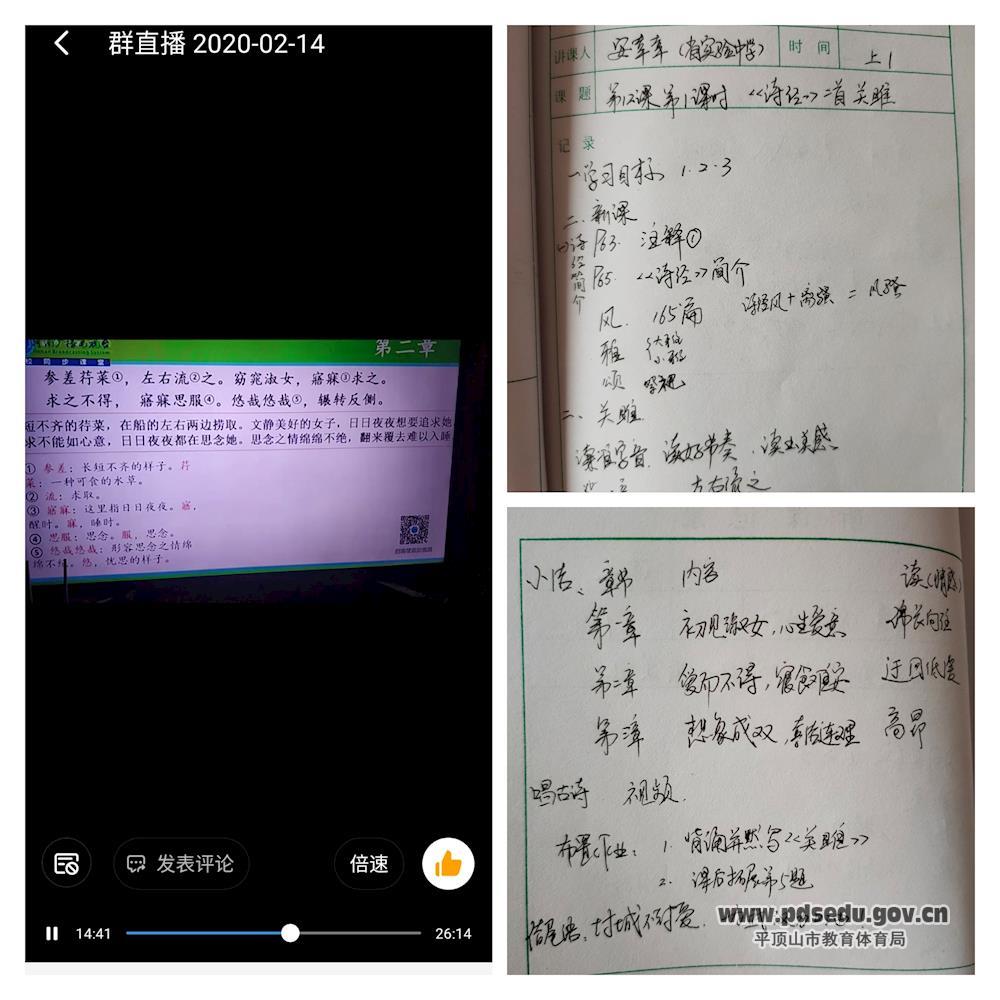 群直播 2020-02-14
第二章
参差荇菜①，左右流②之。窈窕淑女，寤寐③求之。
求之不得，寤寐思服④。悠哉悠哉⑤，辗转反侧。
短不齐的荇菜，在船的左右两边捞取。文静美好的女子，日日夜夜想要追求她
求不能如心意，日日夜夜都在思念她。思念之情绵绵不绝，翻来覆去难以入睡
① 参差：长短不齐的样子。荇
菜：一种可食的水草。
② 流：求取。
③ 寤寐：这里指日日夜夜。寤，
醒时。寐，睡时。
④ 思服：思念。服，思念。
⑤ 悠哉悠哉：形容思念之情绵
绵不绝。悠，忧思的样子。
发表评论
倍速
14:41
26:14
讲课人 安幸幸（省实验中学） 时间 上1
课题 第12课第1课时 《诗经》二首 关雎
记录
一、学习目标 1.2.3
二、新课
(1)诗经简介 P63. 注释①
P65. 《诗经》简介
风. 165篇 诗经风+离骚=风骚
雅 大雅
小雅
颂
二、关雎
读准字音，读好节奏，读出美感
左右流之
小结、章节 内容 读(情感)
第一章 初见淑女，心生爱意
第二章 爱而不得，寝食难安 迂回低度
第三章 想象成双，喜结连理 高昂
唱古诗 视频.
布置作业：1. 背诵并默写《关雎》
2. 课后拓展第5题
www.pdsedu.gov.cn
平顶山市教育体育局